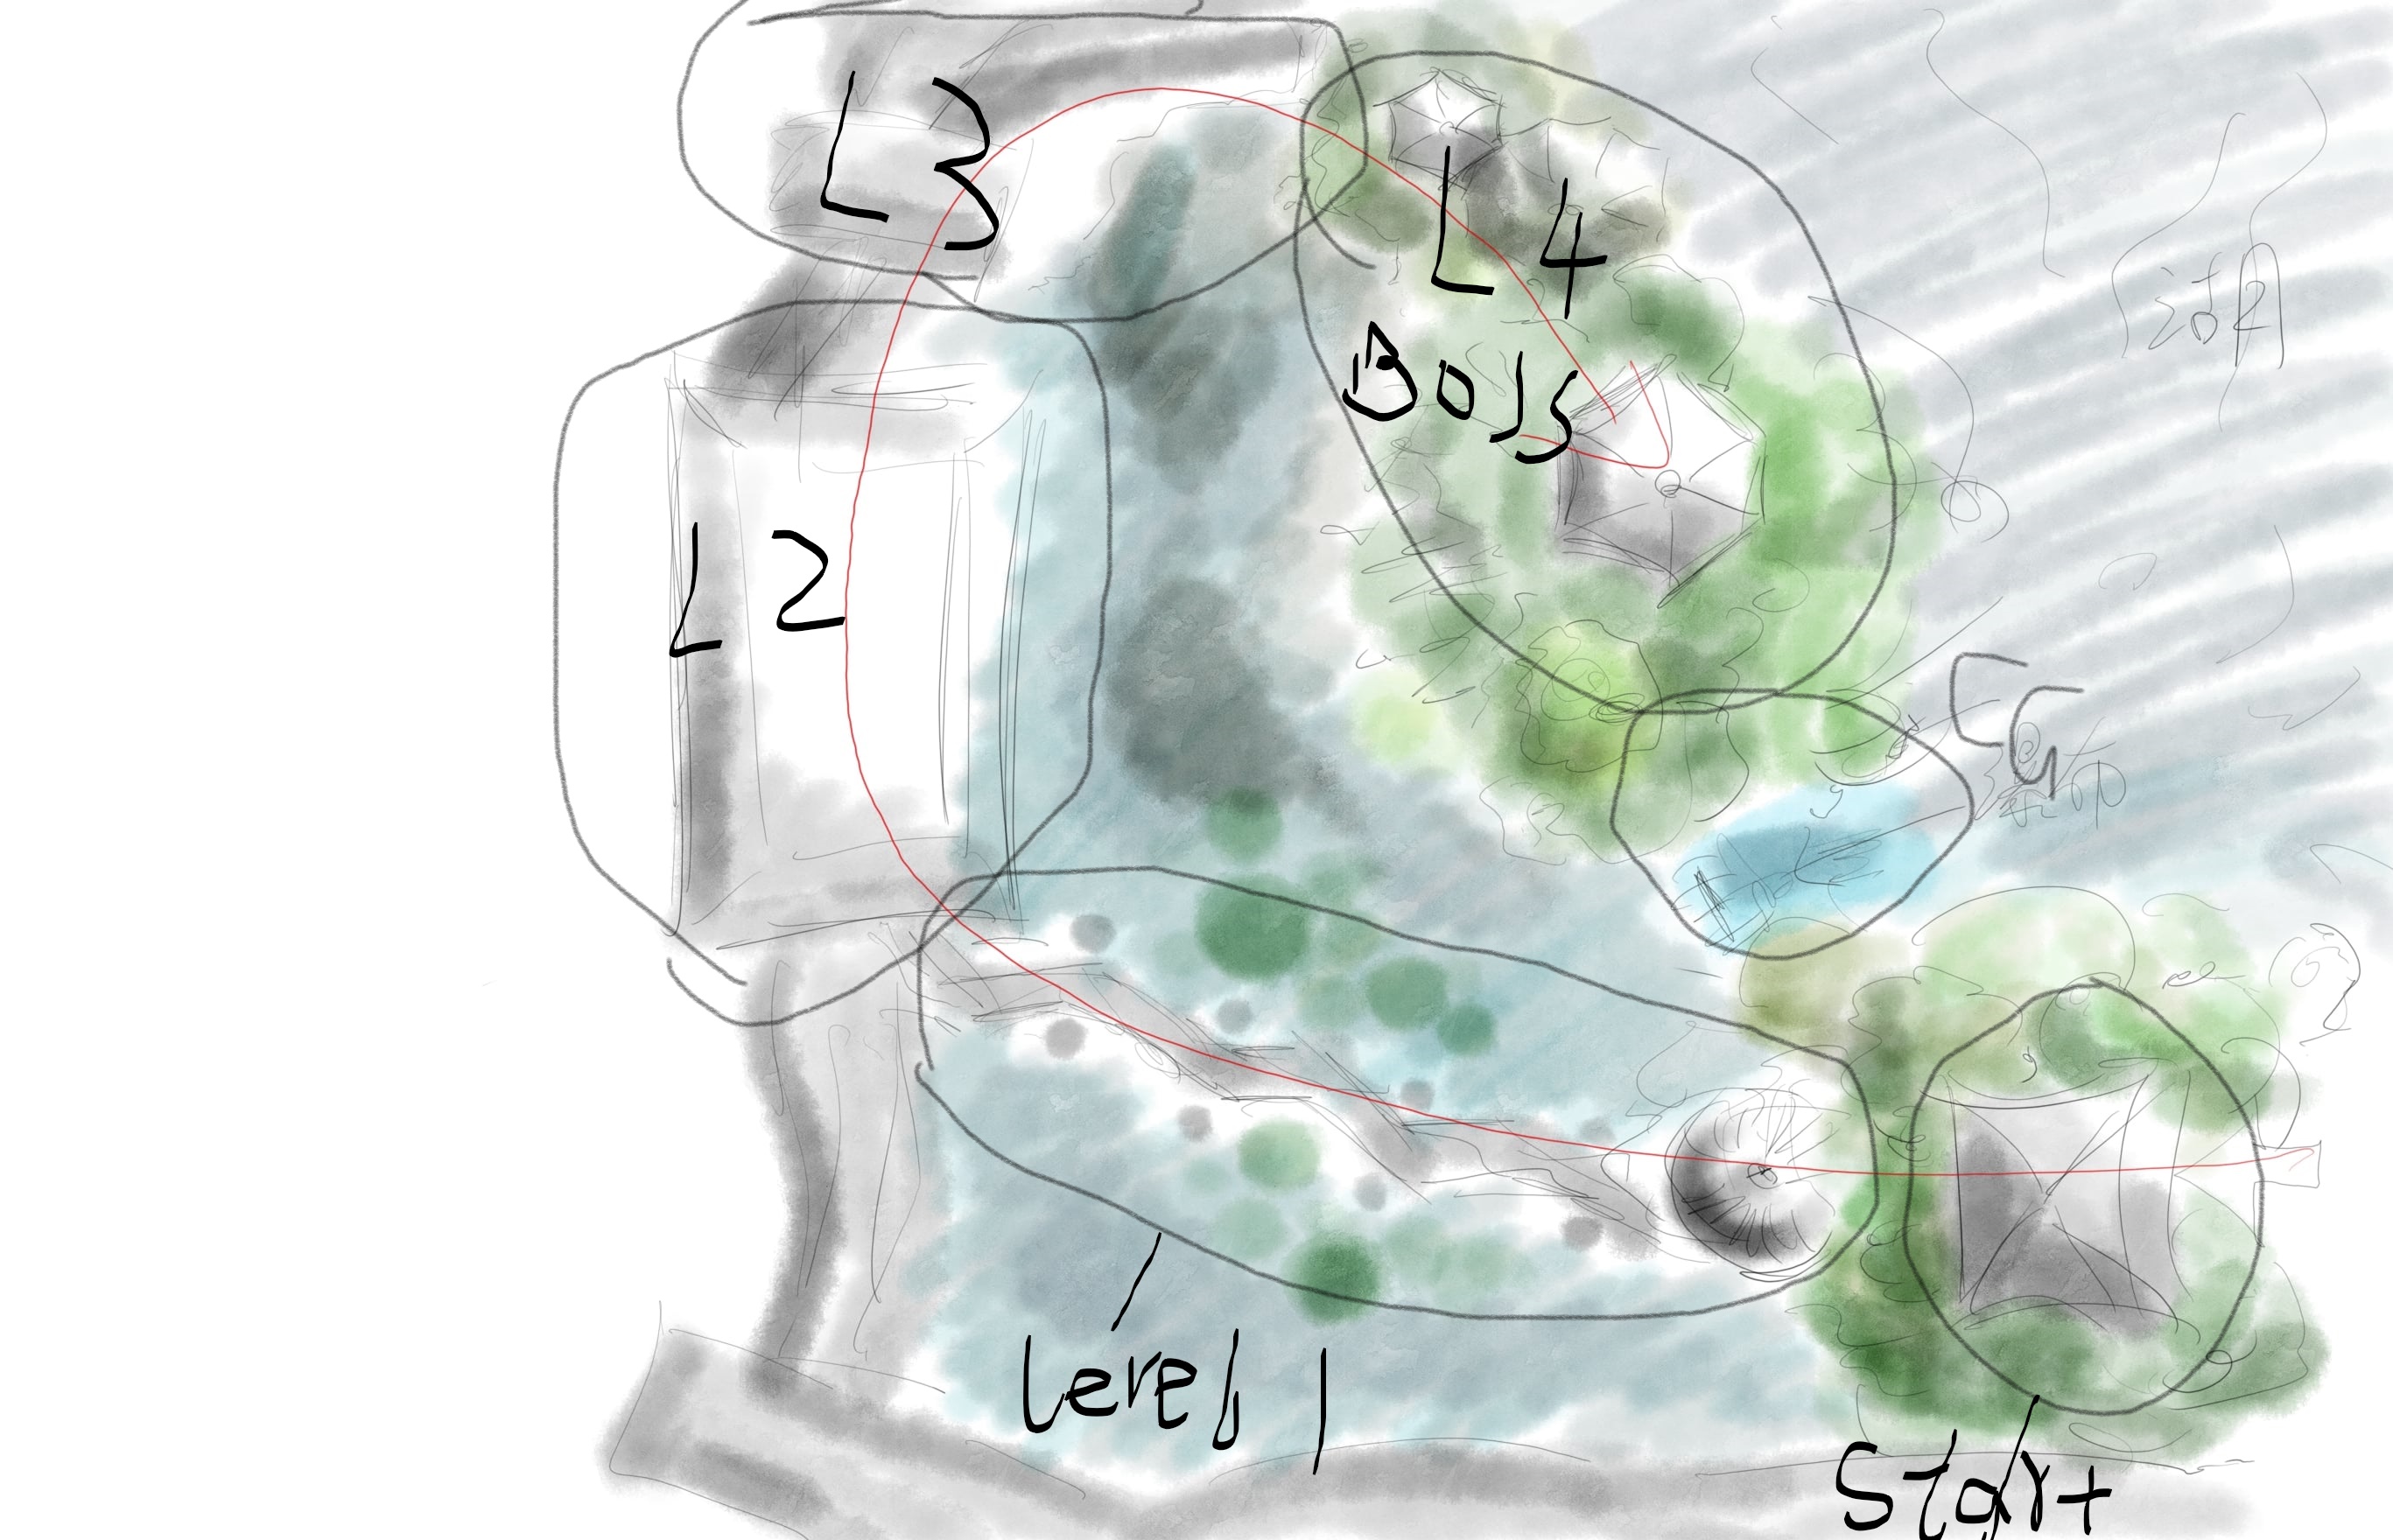 L3
L4
Boss
湖
L2
CG
瀑布
Level 1
Start